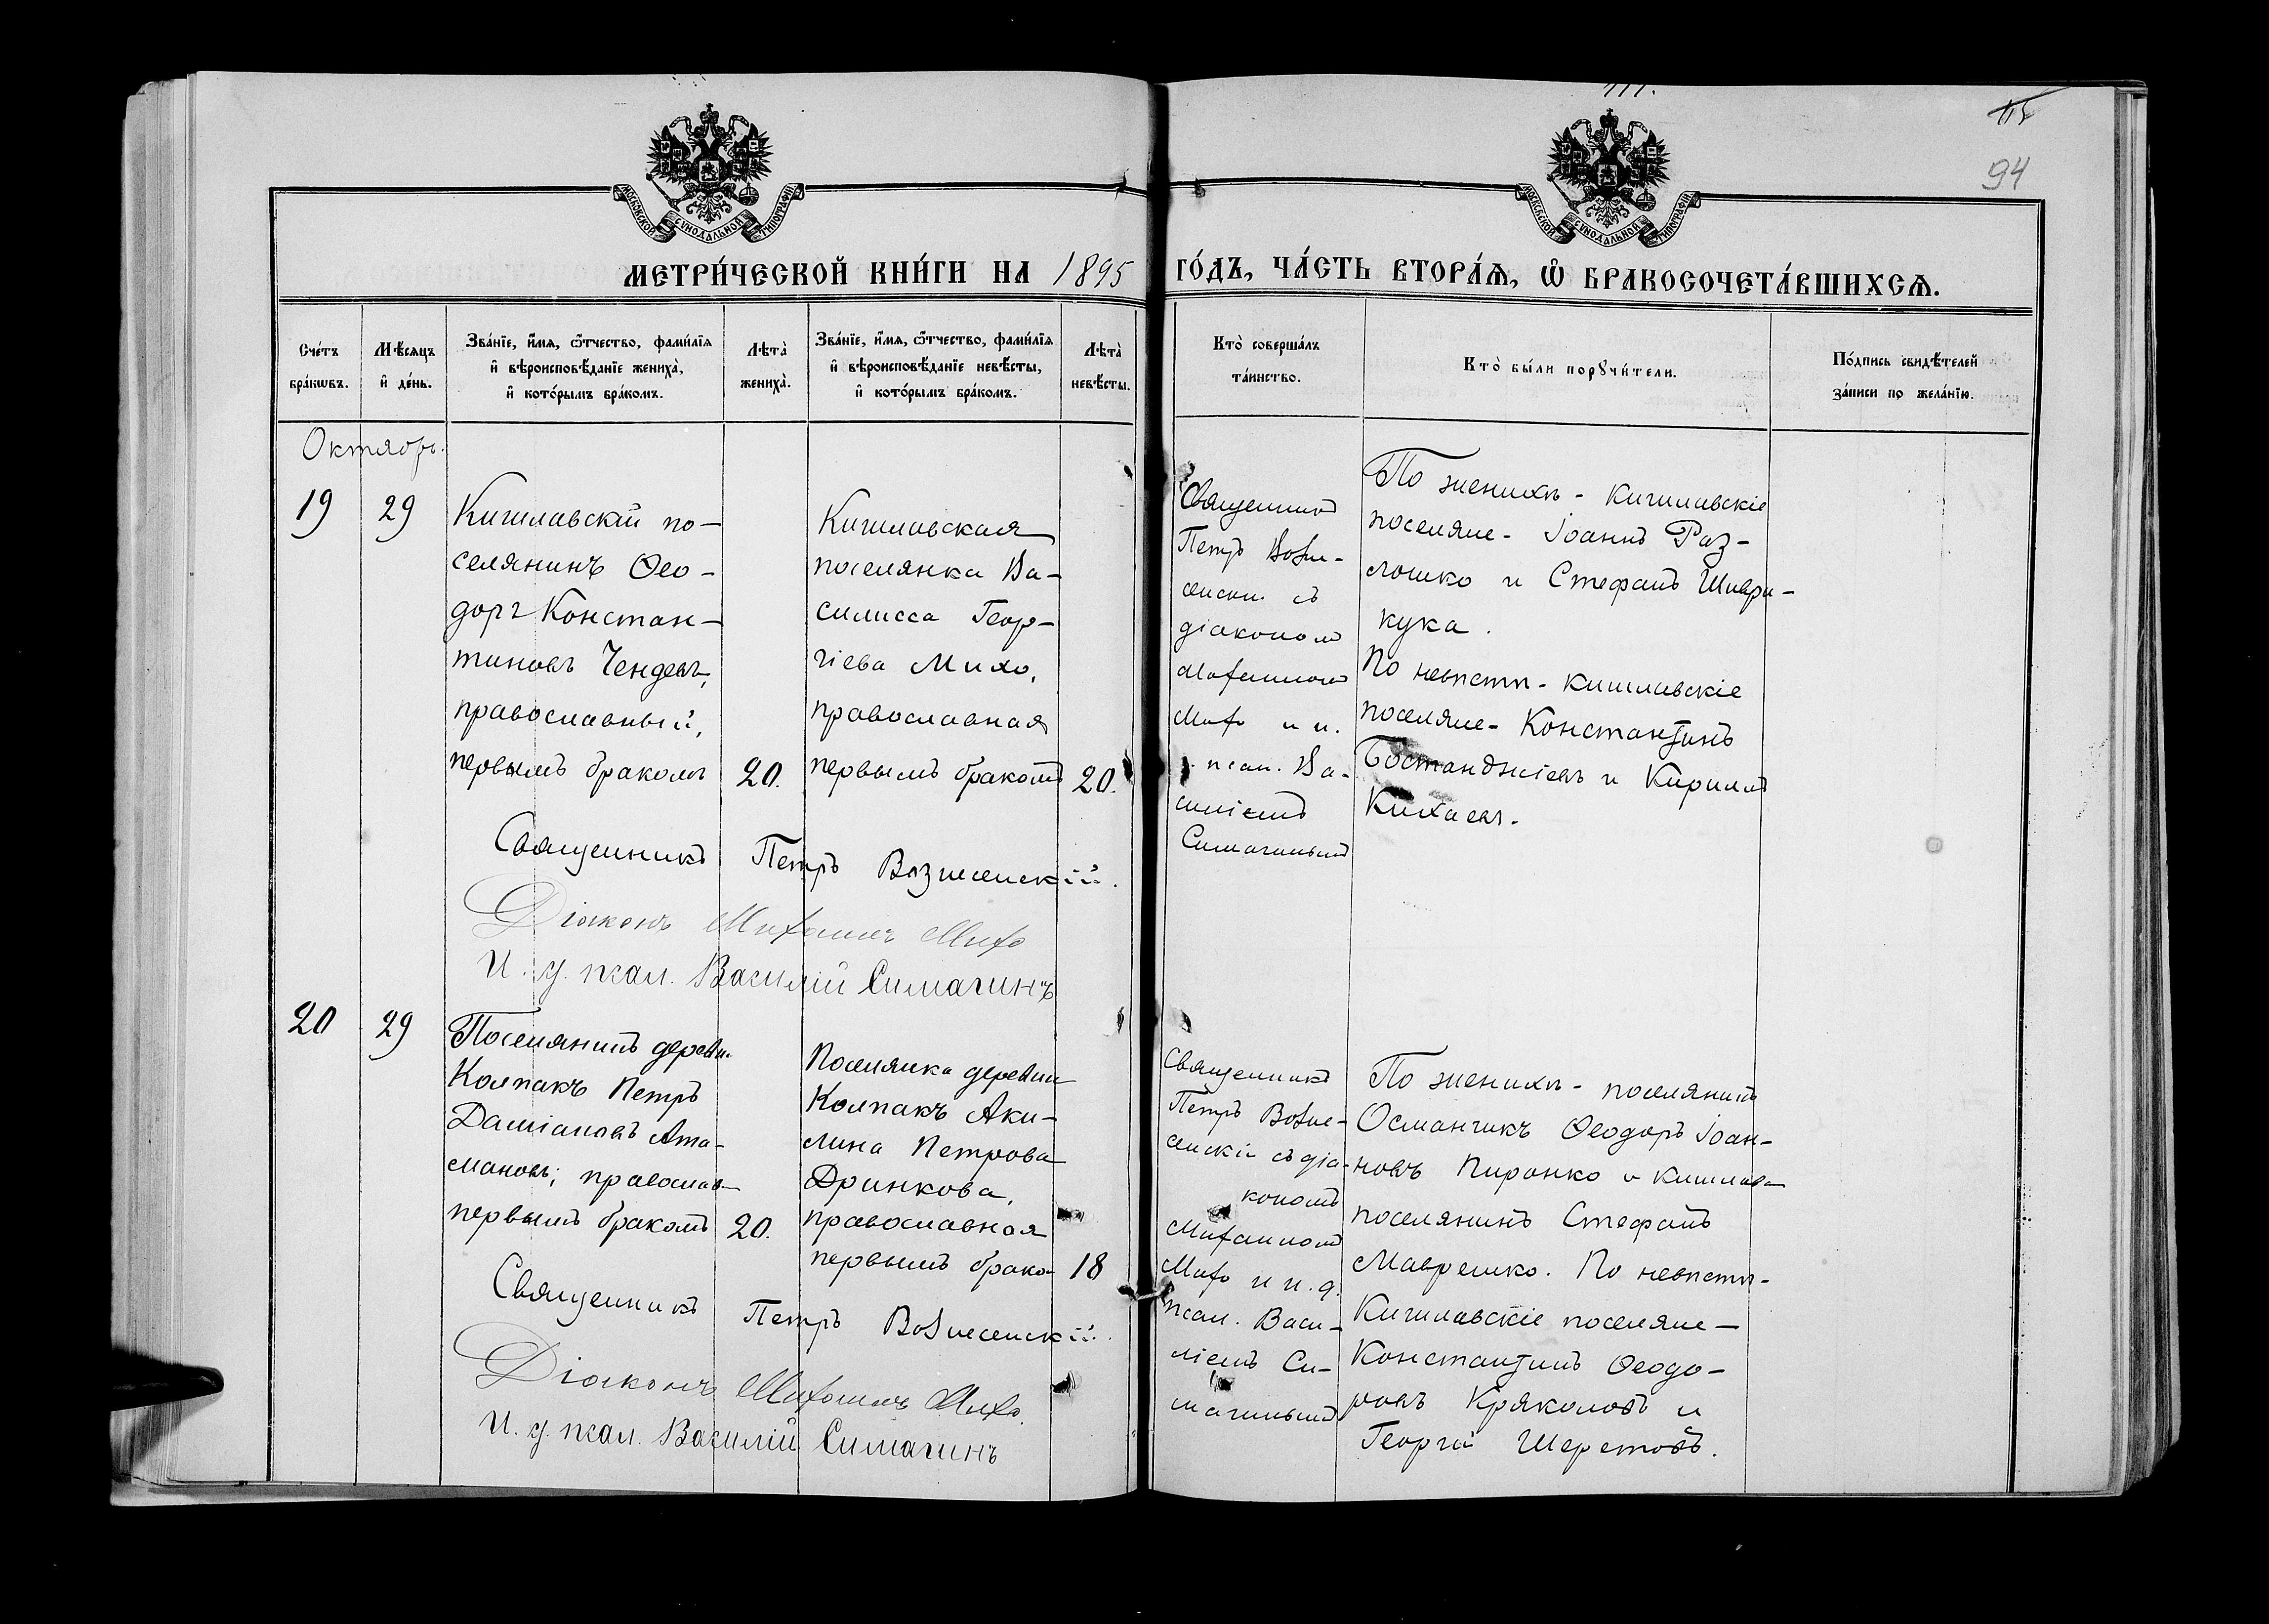 111.
115
94
МОСКОВСКОЙ СУНОДАЛЬНОЙ ТИПОГРАФІИ
МОСКОВСКОЙ СУНОДАЛЬНОЙ ТИПОГРАФІИ
МЕТРИ́ЧЕСКОЙ КНИ́ГИ НА 1895 ГО́ДЪ, ЧА́СТЬ ВТОРА́Ѧ, Ѽ БРАКОСОЧЕТА́ВШИХСѦ.
Сче́тъ
бра́кѡвъ.
Мѣ́сяцъ
и҆ де́нь.
Зва́нїе, и҆́мя, ѻ҆́тчество, фами́лїя
и҆ вѣроисповѣ́данїе жениха̀,
и҆ кото́рымъ бра́комъ.
Лѣта̀
жениха̀.
Зва́нїе, и҆́мя, ѻ҆́тчество, фами́лїя
и҆ вѣроисповѣ́данїе невѣ́сты,
и҆ кото́рымъ бра́комъ.
Лѣта̀
невѣ́сты.
Кто̀ соверша́лъ
та́инство.
Кто̀ бы́ли порꙋчи́тели.
По́дпись свидѣ́телей
за́писи по жела́нїю.
Октябрь.
19
29
Кишлавскій по-
селянинъ Ѳео-
доръ Констан-
тиновъ Чендевъ,
православный,
первымъ бракомъ
20.
Кишлавская
поселянка Ва-
силисса Геор-
гіева Михо,
православная
первымъ бракомъ
20.
Священникъ
Петръ Возне-
сенскій съ
діакономъ
Михаиломъ
Михо и и.
псал. Ва-
силіемъ
Симагинымъ
По женихѣ - Кишлавскіе
поселяне - Іоаннъ Раз-
лошко и Стефанъ Шиври-
кука.
По невѣстѣ - кишлавскіе
поселяне - Константинъ
Бостанджіевъ и Кириллъ
Кихаевъ.
Священникъ Петръ Вознесенскій.
Діаконъ Михаилъ Михо
И. д. псал. Василій Симагинъ
20
29
Поселянинъ деревн.
Колпакъ Петръ
Даміановъ Ата-
мановъ, православ-
первымъ бракомъ
20.
Поселянка деревни
Колпакъ Аки-
лина Петрова
Дринкова,
православная
первымъ брако-
18
Священникъ
Петръ Возне-
сенскій съ діа-
кономъ
Михаиломъ
Михо и и. д.
псал. Васи-
ліемъ Си-
магинымъ
По женихѣ - поселянинъ
Османчикъ Ѳеодоръ Іоан-
новъ Пиронко и кишлав-
поселянинъ Стефанъ
Маврешко. По невѣстѣ -
Кишлавскіе поселяне -
Константинъ Ѳеодо-
ровъ Кряколовъ и
Георгій Шеретовъ.
Священникъ Петръ Вознесенскій.
Діаконъ Михаилъ Михо.
И. д. псал. Василій Симагинъ